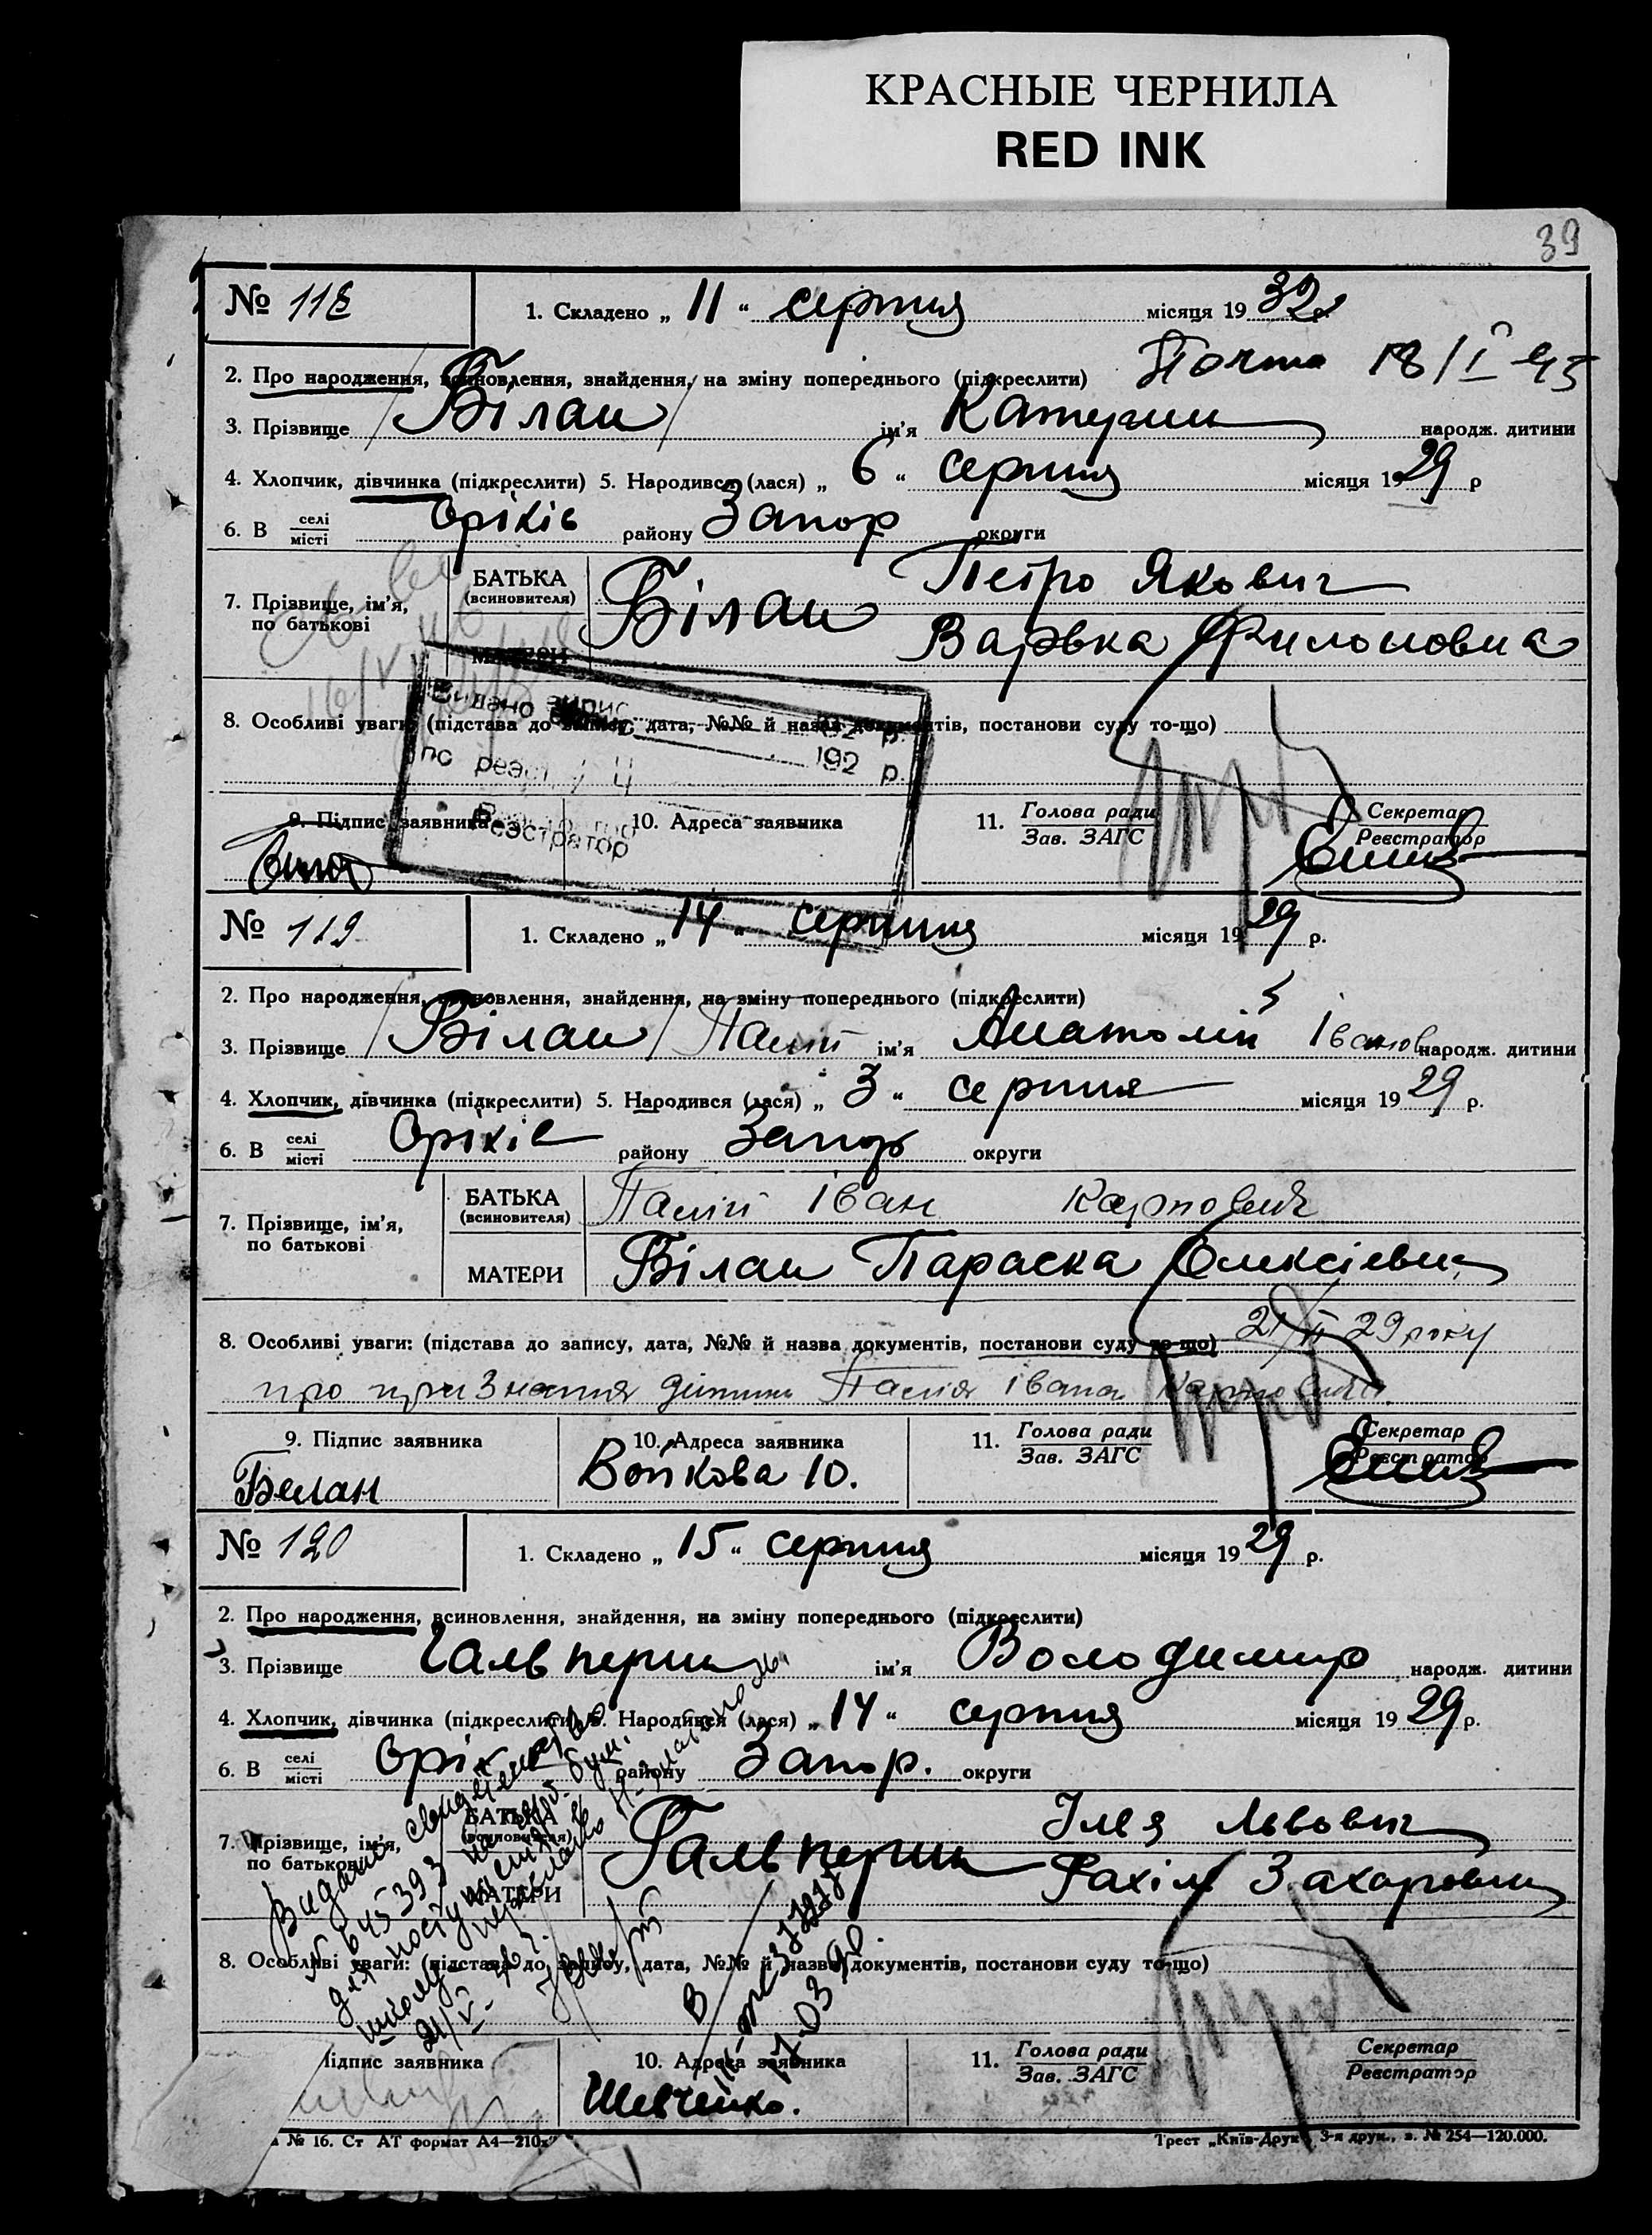 КРАСНЫЕ ЧЕРНИЛА
RED INK
39
№ 118 1. Складено „ 11 “ серпня місяця 19 32 р.
2. Про народження, всиновлення, знайдення, на зміну попереднього (підкреслити) Почта 18/I 45
3. Прізвище Білан ім'я Катерина народж. дитини
4. Хлопчик, дівчинка (підкреслити) 5. Народився (лася) „ 6 “ серпня місяця 19 29 р
6. В селі місті Оріхів району Запор округи
7. Прізвище, ім'я, по батькові БАТЬКА (всиновителя) Білан Петро Якович
МАТЕРИ Варвка Филоновна
Видано випис 192 р.
8. Особливі уваги: (підстава до запису, дата, №№ й назва документів, постанови суду то-що)
по реєст. ч 192 р.
Реэстратор
9. Підпис заявника 10. Адреса заявника 11. Голова ради Зав. ЗАГС Секретар Реєстратор
№ 119 1. Складено „ 14 “ серпня місяця 19 29 р.
2. Про народження, всиновлення, знайдення, на зміну попереднього (підкреслити)
3. Прізвище Білан Палій ім'я Анатолій Іванов народж. дитини
4. Хлопчик, дівчинка (підкреслити) 5. Народився (лася) „ 3 “ серпня місяця 19 29 р.
6. В селі місті Оріхів району Запор округи
7. Прізвище, ім'я, по батькові БАТЬКА (всиновителя) Палій Іван Карпович
МАТЕРИ Білан Параска Олексіевна
8. Особливі уваги: (підстава до запису, дата, №№ й назва документів, постанови суду то-що) 29 року
про признання дитини Палія Івана Карповича
9. Підпис заявника 10. Адреса заявника 11. Голова ради Зав. ЗАГС Секретар Реєстратор
Белан Войкова 10.
№ 120 1. Складено „ 15 “ серпня місяця 19 29 р.
2. Про народження, всиновлення, знайдення, на зміну попереднього (підкреслити)
3. Прізвище Гальперин ім'я Володимир народж. дитини
4. Хлопчик, дівчинка (підкреслити) 5. Народився (лася) „ 14 “ серпня місяця 19 29 р.
6. В селі місті Оріхів району Запор. округи
7. Прізвище, ім'я, по батькові БАТЬКА (всиновителя) Гальперин Ілья Львович
МАТЕРИ Рахіль Захаровна
Видано свидетельство
8. Особливі уваги: (підстава до запису, дата, №№ й назва документів, постанови суду то-що)
Підпис заявника 10. Адреса заявника 11. Голова ради Зав. ЗАГС Секретар Реєстратор
Шевченко.
№ 16. Ст АТ формат А4—210х
Трест „Київ-Друк“ 3-я друк., з. № 254—120.000.